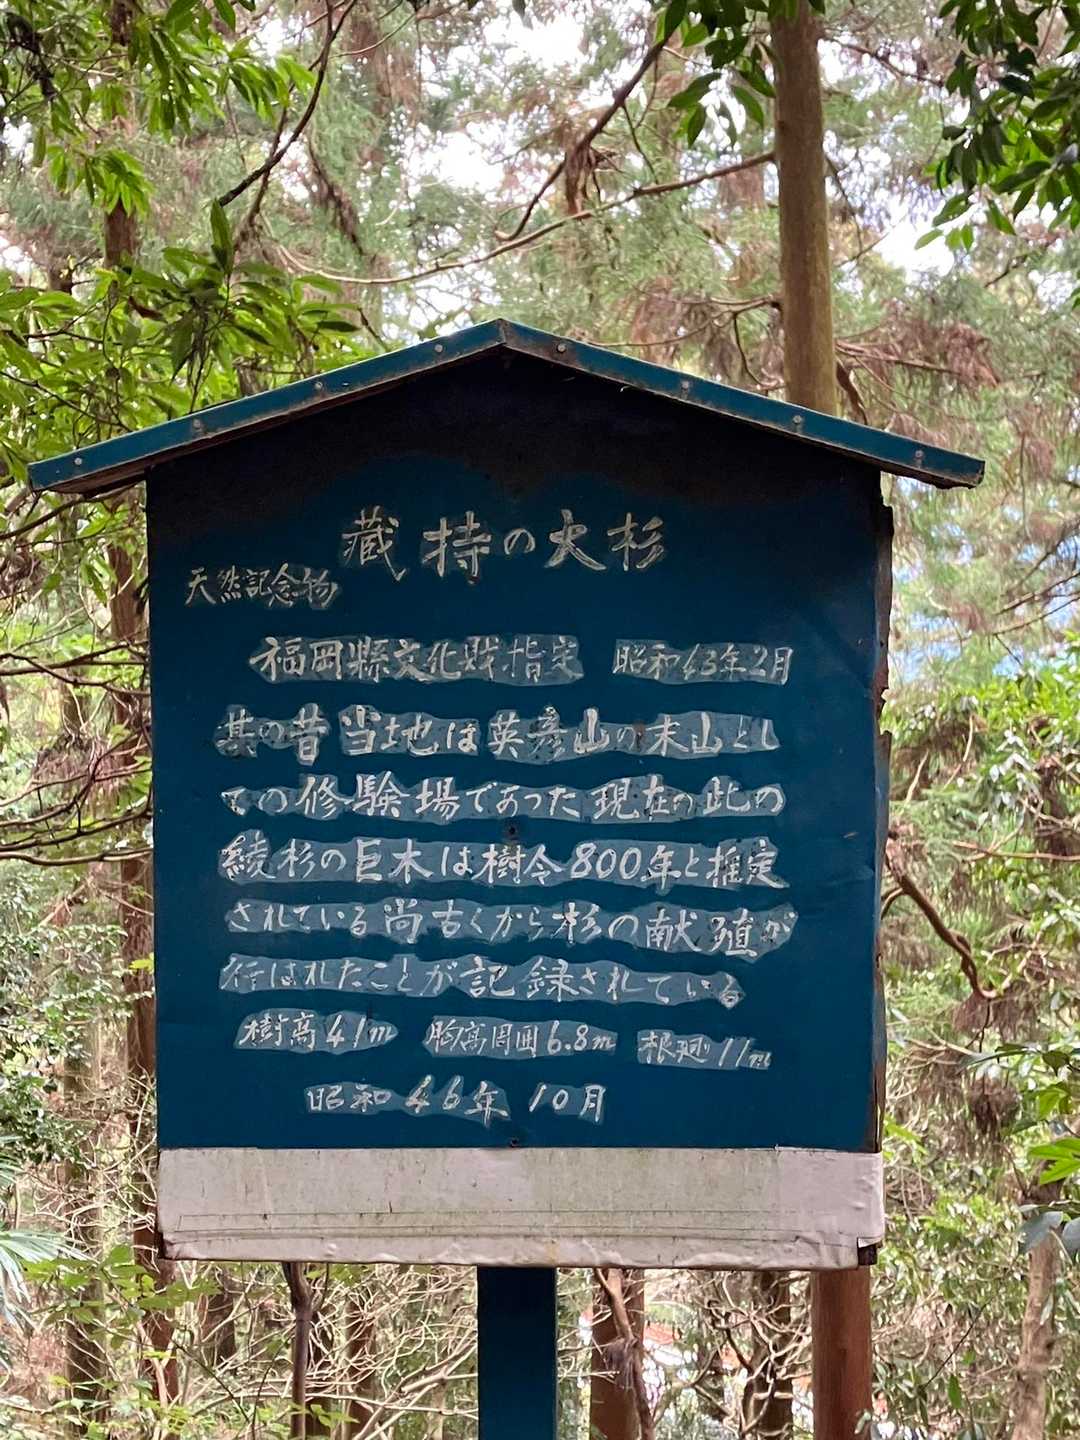 蔵持の大杉
天然記念物
福岡縣文化財指定 昭和43年2月
其の昔当地は英彦山の末山とし
ての修験場であった現在の此の
綾杉の巨木は樹令800年と推定
されている尚古くから杉の献殖が
行はれたことが記録されている
樹高41m 胸高周囲6.8m 根廻11m
昭和46年10月